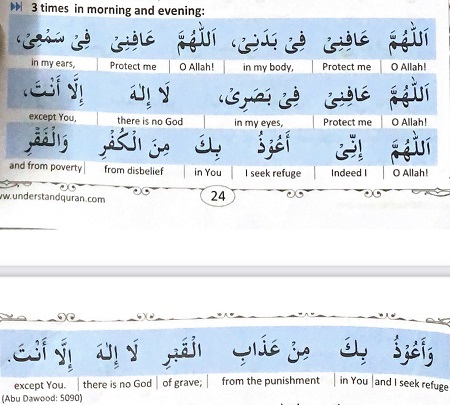 3 times in morning and evening:
اَللّٰهُمَّ عَافِنِيْ فِيْ بَدَنِيْ، اَللّٰهُمَّ عَافِنِيْ فِيْ سَمْعِيْ،
O Allah! Protect me in my body, O Allah! Protect me in my ears,
اَللّٰهُمَّ عَافِنِيْ فِيْ بَصَرِيْ، لَا إِلٰهَ إِلَّا أَنْتَ،
O Allah! Protect me in my eyes, there is no God except You,
اَللّٰهُمَّ إِنِّيْ أَعُوْذُ بِكَ مِنَ الْكُفْرِ وَالْفَقْرِ
O Allah! Indeed I I seek refuge in You from disbelief and from poverty
ww.understandquran.com 24
وَأَعُوْذُ بِكَ مِنْ عَذَابِ الْقَبْرِ لَا إِلٰهَ إِلَّا أَنْتَ.
and I seek refuge in You from the punishment of grave; there is no God except You.
(Abu Dawood: 5090)